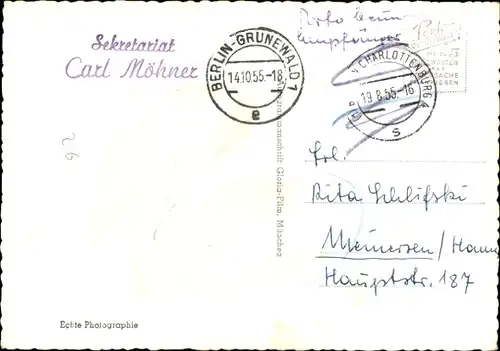 Sekretariat
Carl Möhner
BERLIN-GRUNEWALD 1
14.10.55.-18
e
Porto beim
Empfänger
CHARLOTTENBURG 4
19.8.55.-16
s
Gloria-Film, München
Frl.
Rita Schlifski
Meinersen/Hann
Hauptstr. 187
26
Echte Photographie